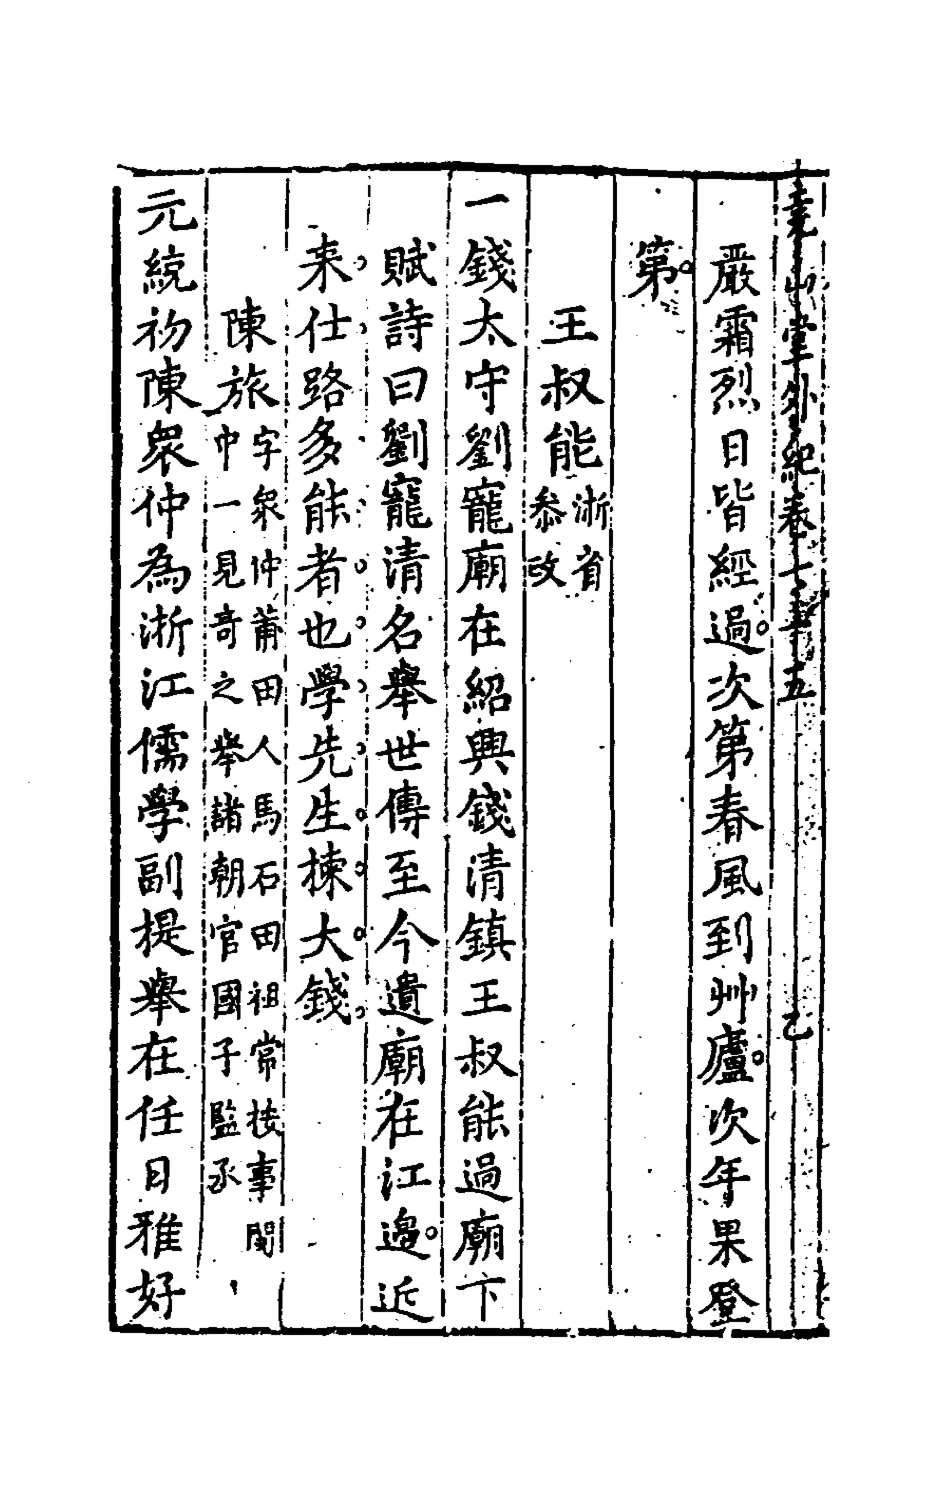 堯山堂外紀卷七十五 乙
嚴霜烈日皆經過次第春風到艸廬次年果登
第
王叔能浙省參政
一錢太守劉寵廟在紹興錢清鎮王叔能過廟下
賦詩曰劉寵清名舉世傳至今遺廟在江邊近
来仕路多能者也學先生揀大錢
陳旅字衆仲莆田人馬石田祖常按事閩中一見奇之舉諸朝官國子監丞
元統初陳衆仲為浙江儒學副提舉在任日雅好